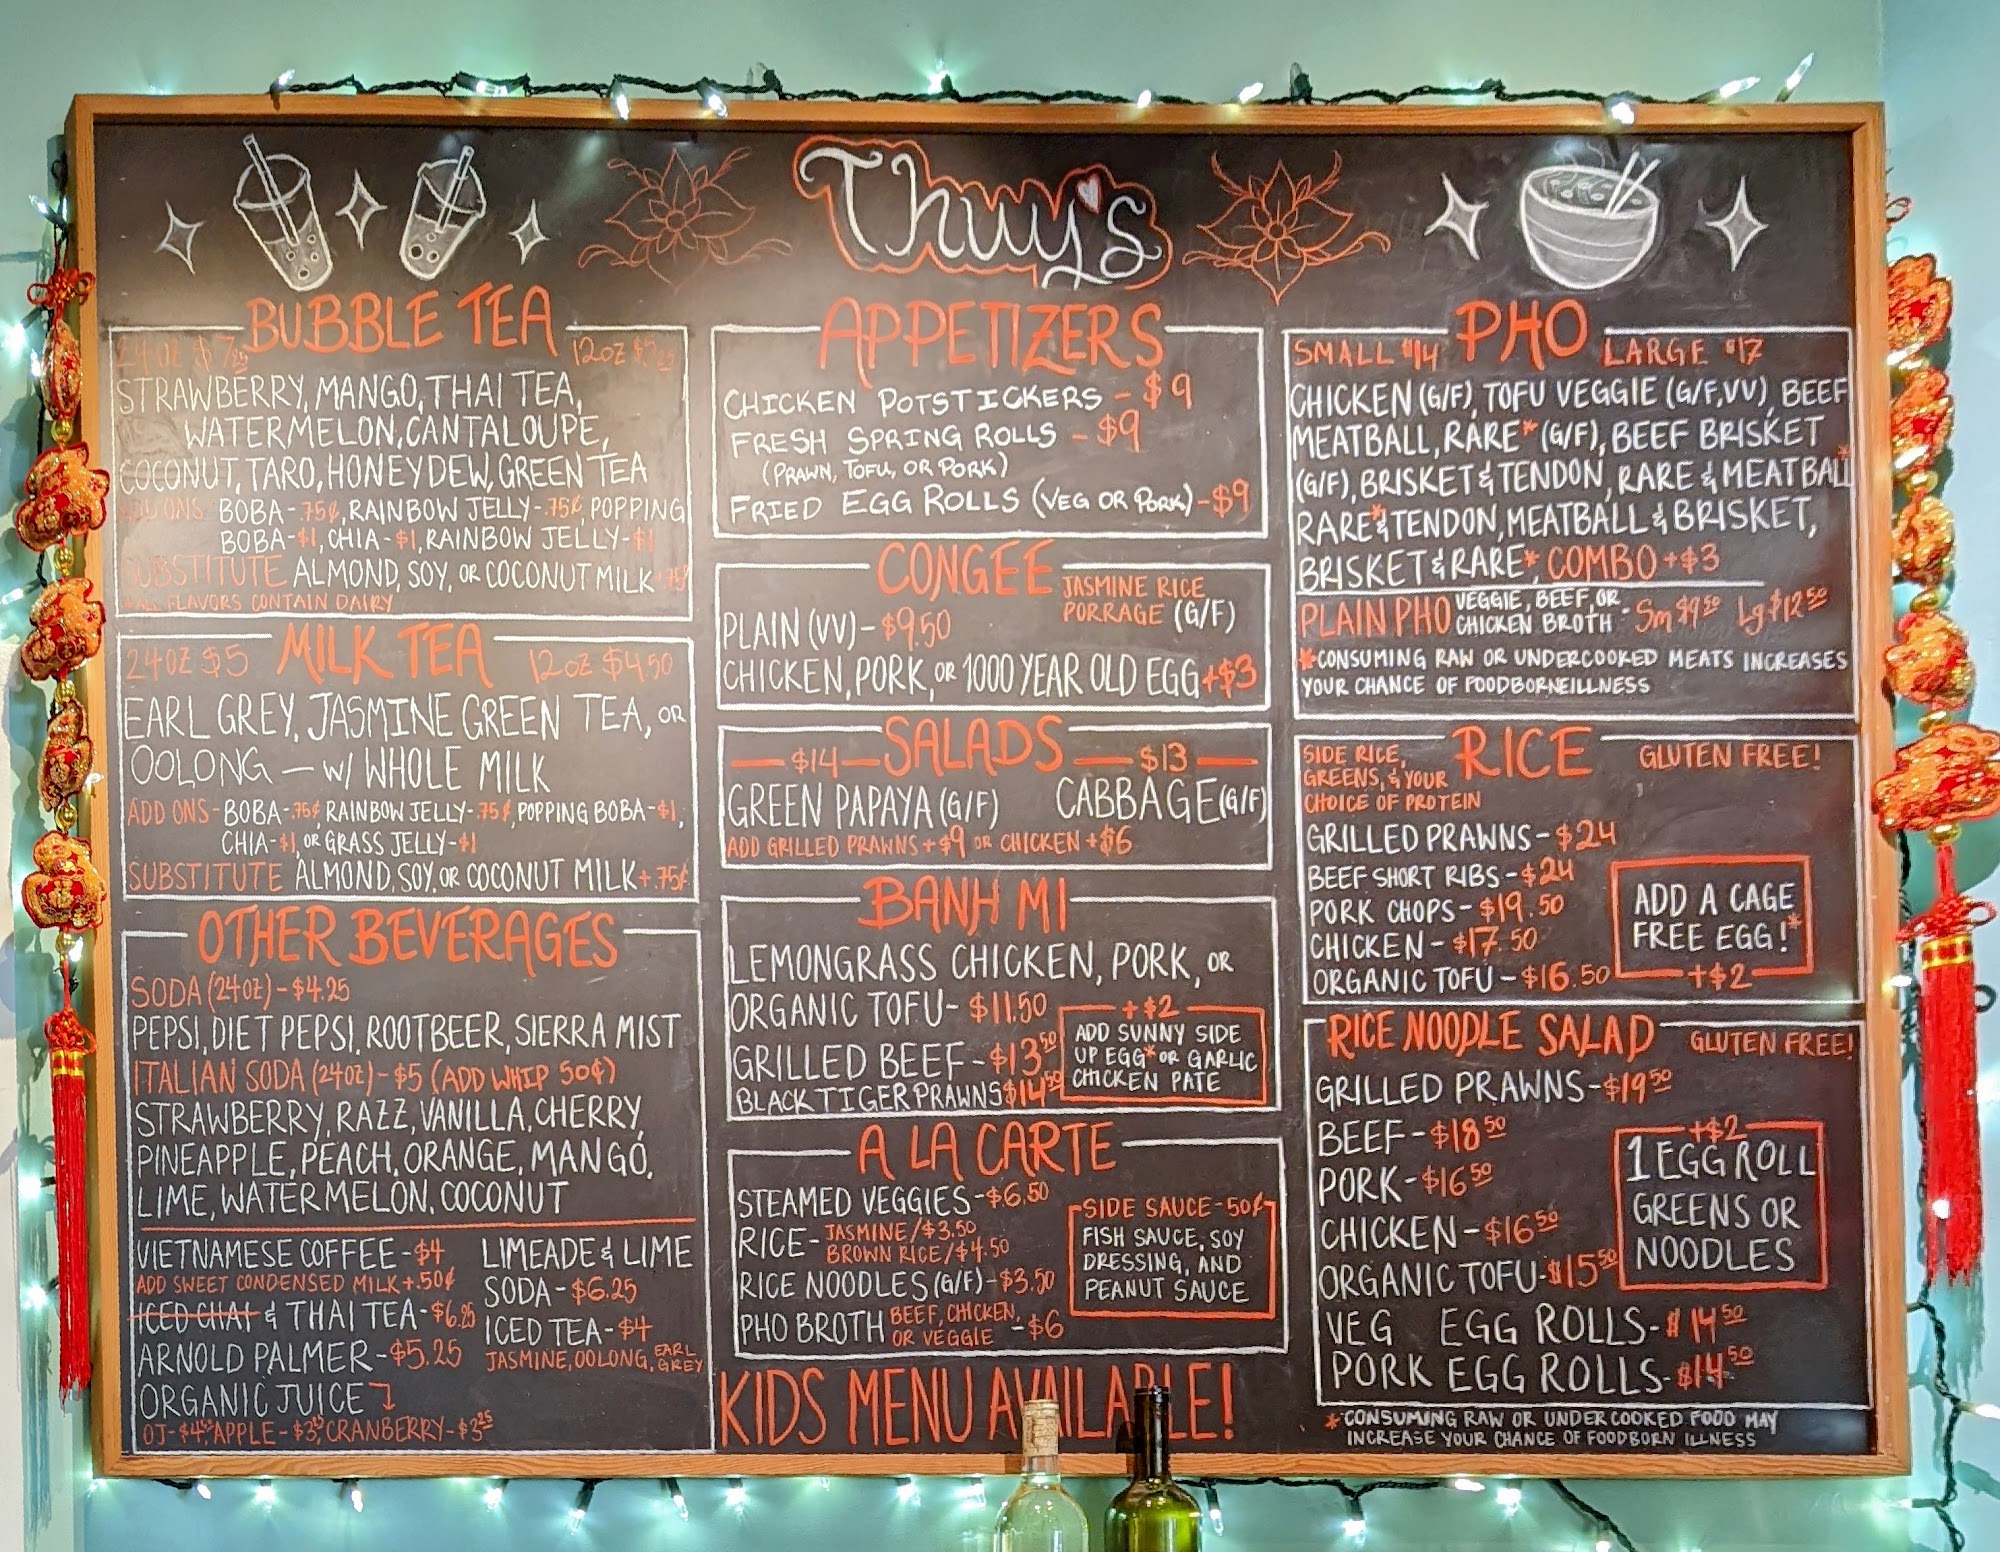 Thuy's
BUBBLE TEA
24OZ $7.25 12OZ $5.25
STRAWBERRY, MANGO, THAI TEA,
WATERMELON, CANTALOUPE,
COCONUT, TARO, HONEYDEW, GREEN TEA
ADD ONS BOBA-.75¢, RAINBOW JELLY-.75¢, POPPING
BOBA-$1, CHIA-$1, RAINBOW JELLY-$1
SUBSTITUTE ALMOND, SOY, OR COCONUT MILK +.75¢
*ALL FLAVORS CONTAIN DAIRY
MILK TEA
24OZ $5 12OZ $4.50
EARL GREY, JASMINE GREEN TEA, OR
OOLONG — W/ WHOLE MILK
ADD ONS-BOBA-.75¢, RAINBOW JELLY-.75¢, POPPING BOBA-$1,
CHIA-$1, OR GRASS JELLY-$1
SUBSTITUTE ALMOND, SOY, OR COCONUT MILK+.75¢
OTHER BEVERAGES
SODA (24OZ)-$4.25
PEPSI, DIET PEPSI, ROOTBEER, SIERRA MIST
ITALIAN SODA (24OZ)-$5 (ADD WHIP 50¢)
STRAWBERRY, RAZZ, VANILLA, CHERRY,
PINEAPPLE, PEACH, ORANGE, MANGO,
LIME, WATERMELON, COCONUT
VIETNAMESE COFFEE-$4
ADD SWEET CONDENSED MILK+.50¢
ICED CHAI & THAI TEA-$6.25
ARNOLD PALMER-$5.25
ORGANIC JUICE
OJ-$4.25, APPLE-$3.25, CRANBERRY-$3.25
LIMEADE & LIME
SODA-$6.25
ICED TEA-$4
JASMINE, OOLONG, EARL GREY
APPETIZERS
CHICKEN POTSTICKERS-$9
FRESH SPRING ROLLS-$9
(PRAWN, TOFU, OR PORK)
FRIED EGG ROLLS (VEG OR PORK)-$9
CONGEE
JASMINE RICE
PORRAGE (G/F)
PLAIN (VV)-$9.50
CHICKEN, PORK, OR 1000 YEAR OLD EGG +$3
SALADS
$14 $13
GREEN PAPAYA (G/F) CABBAGE (G/F)
ADD GRILLED PRAWNS+$9 OR CHICKEN+$6
BANH MI
LEMONGRASS CHICKEN, PORK, OR
ORGANIC TOFU-$11.50
GRILLED BEEF-$13.50
BLACK TIGER PRAWNS $14.50
+$2
ADD SUNNY SIDE
UP EGG* OR GARLIC
CHICKEN PATE
A LA CARTE
STEAMED VEGGIES-$6.50
RICE-JASMINE/$3.50
BROWN RICE/$4.50
RICE NOODLES (G/F)-$3.50
PHO BROTH BEEF, CHICKEN, OR VEGGIE -$6
SIDE SAUCE-50¢
FISH SAUCE, SOY
DRESSING, AND
PEANUT SAUCE
KIDS MENU AVAILABLE!
PHO
SMALL $14 LARGE $17
CHICKEN (G/F), TOFU VEGGIE (G/F,VV), BEEF
MEATBALL, RARE* (G/F), BEEF BRISKET
(G/F), BRISKET & TENDON, RARE & MEATBALL*
RARE* & TENDON, MEATBALL & BRISKET,
BRISKET & RARE*, COMBO+$3
PLAIN PHO VEGGIE, BEEF, OR CHICKEN BROTH - Sm $9.50 Lg $12.50
*CONSUMING RAW OR UNDERCOOKED MEATS INCREASES
YOUR CHANCE OF FOODBORNEILLNESS
RICE
SIDE RICE,
GREENS, & YOUR
CHOICE OF PROTEIN
GLUTEN FREE!
GRILLED PRAWNS-$24
BEEF SHORT RIBS-$24
PORK CHOPS-$19.50
CHICKEN-$17.50
ORGANIC TOFU-$16.50
ADD A CAGE
FREE EGG!*
+$2
RICE NOODLE SALAD
GLUTEN FREE!
GRILLED PRAWNS-$19.50
BEEF-$18.50
PORK-$16.50
CHICKEN-$16.50
ORGANIC TOFU-$15.50
VEG EGG ROLLS-$14.50
PORK EGG ROLLS-$14.50
+$2
1 EGG ROLL
GREENS OR
NOODLES
*CONSUMING RAW OR UNDERCOOKED FOOD MAY
INCREASE YOUR CHANCE OF FOODBORN ILLNESS